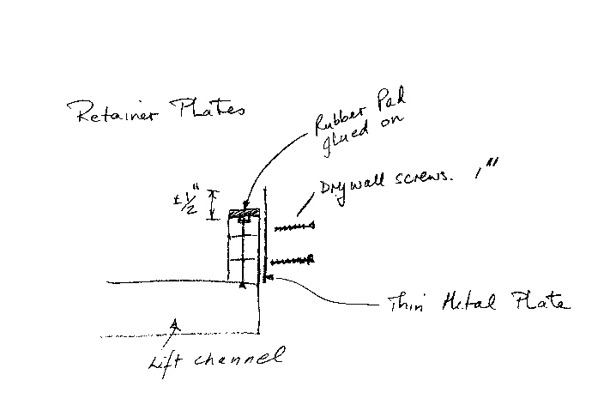 Retainer Plates
Rubber Pad
glued on
± 1/2"
Drywall screws. 1"
Thin Metal Plate
Lift channel